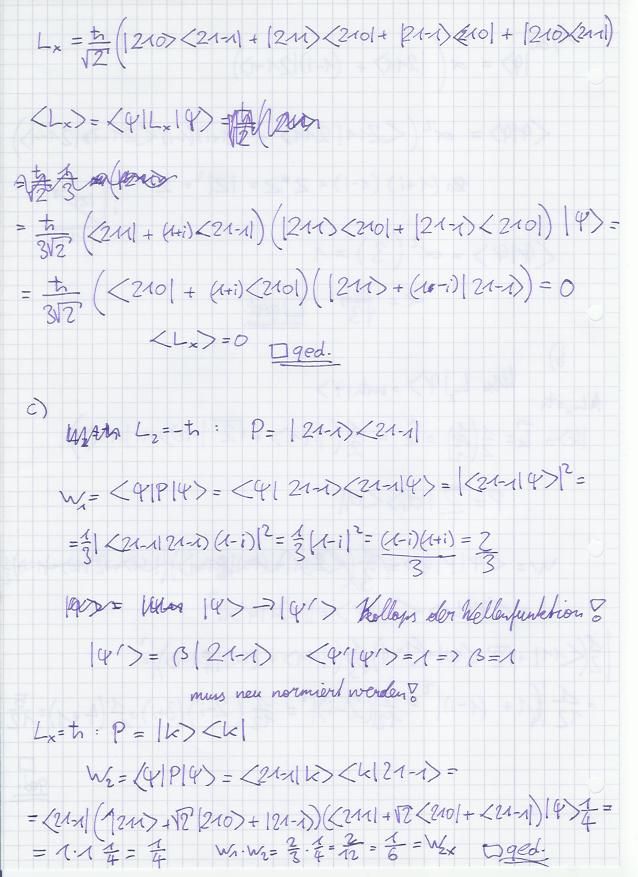 L_x = ħ/√2 (|210><21-1| + |211><210| + |21-1><210| + |210><211|)
<L_x> = <ψ|L_x|ψ> =
= ħ/(3√2) (<211| + (1+i)<21-1|) (|211><210| + |21-1><210|) |ψ> =
= ħ/(3√2) (<210| + (1+i)<210|) (|211> + (1-i)|21-1>) = 0
<L_x> = 0 □ qed.
c)
L_z = -ħ : P = |21-1><21-1|
W_1 = <ψ|P|ψ> = <ψ|21-1><21-1|ψ> = |<21-1|ψ>|² =
= 1/3 |<21-1|21-1>(1-i)|² = 1/3 |1-i|² = (1-i)(1+i)/3 = 2/3
|ψ> → |ψ'> Kollaps der Wellenfunktion!
|ψ'> = β|21-1> <ψ'|ψ'> = 1 => β = 1
muss neu normiert werden!
L_x = ħ : P = |k><k|
W_2 = <ψ|P|ψ> = <21-1|k><k|21-1> =
= <21-1|(1|211> + √2|210> + |21-1>)(<211| + √2<210| + <21-1|)|ψ> 1/4 =
= 1·1 1/4 = 1/4 W_1·W_2 = 2/3 · 1/4 = 2/12 = 1/6 = W_zx □ qed.